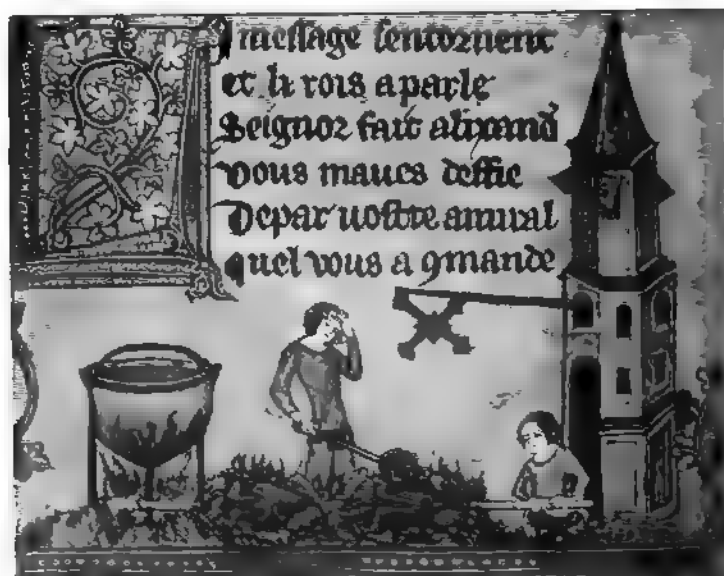 message sentornent
et li rois aparle
Seignor fait alixand
vous maues deffie
Depar uostre amiral
quel vous a 9mande